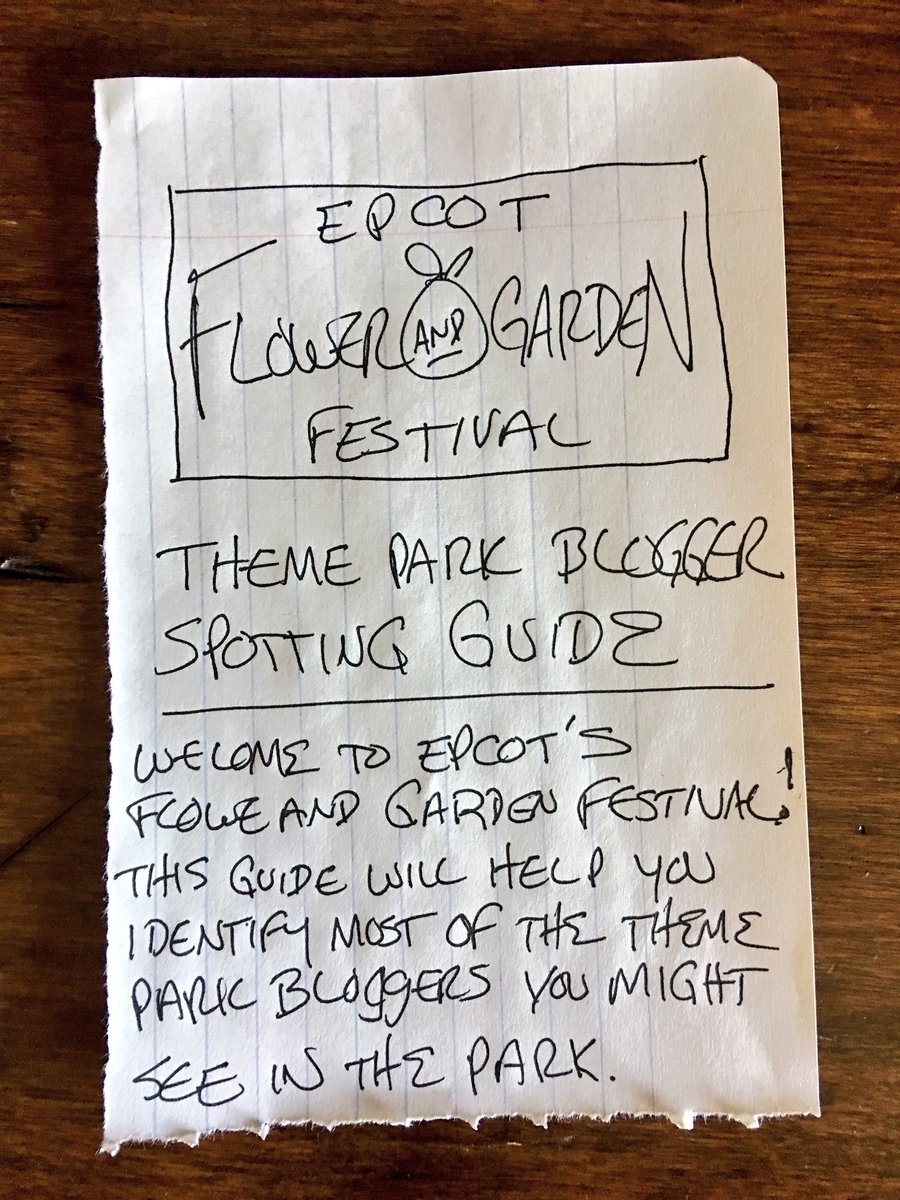 EPCOT
FLOWER AND GARDEN
FESTIVAL
THEME PARK BLOGGER
SPOTTING GUIDE
WELOME TO EPCOT'S
FLOWE AND GARDEN FESTIVAL!
THIS GUIDE WILL HELP YOU
IDENTIFY MOST OF THE THEME
PARK BLOGGERS YOU MIGHT
SEE IN THE PARK.